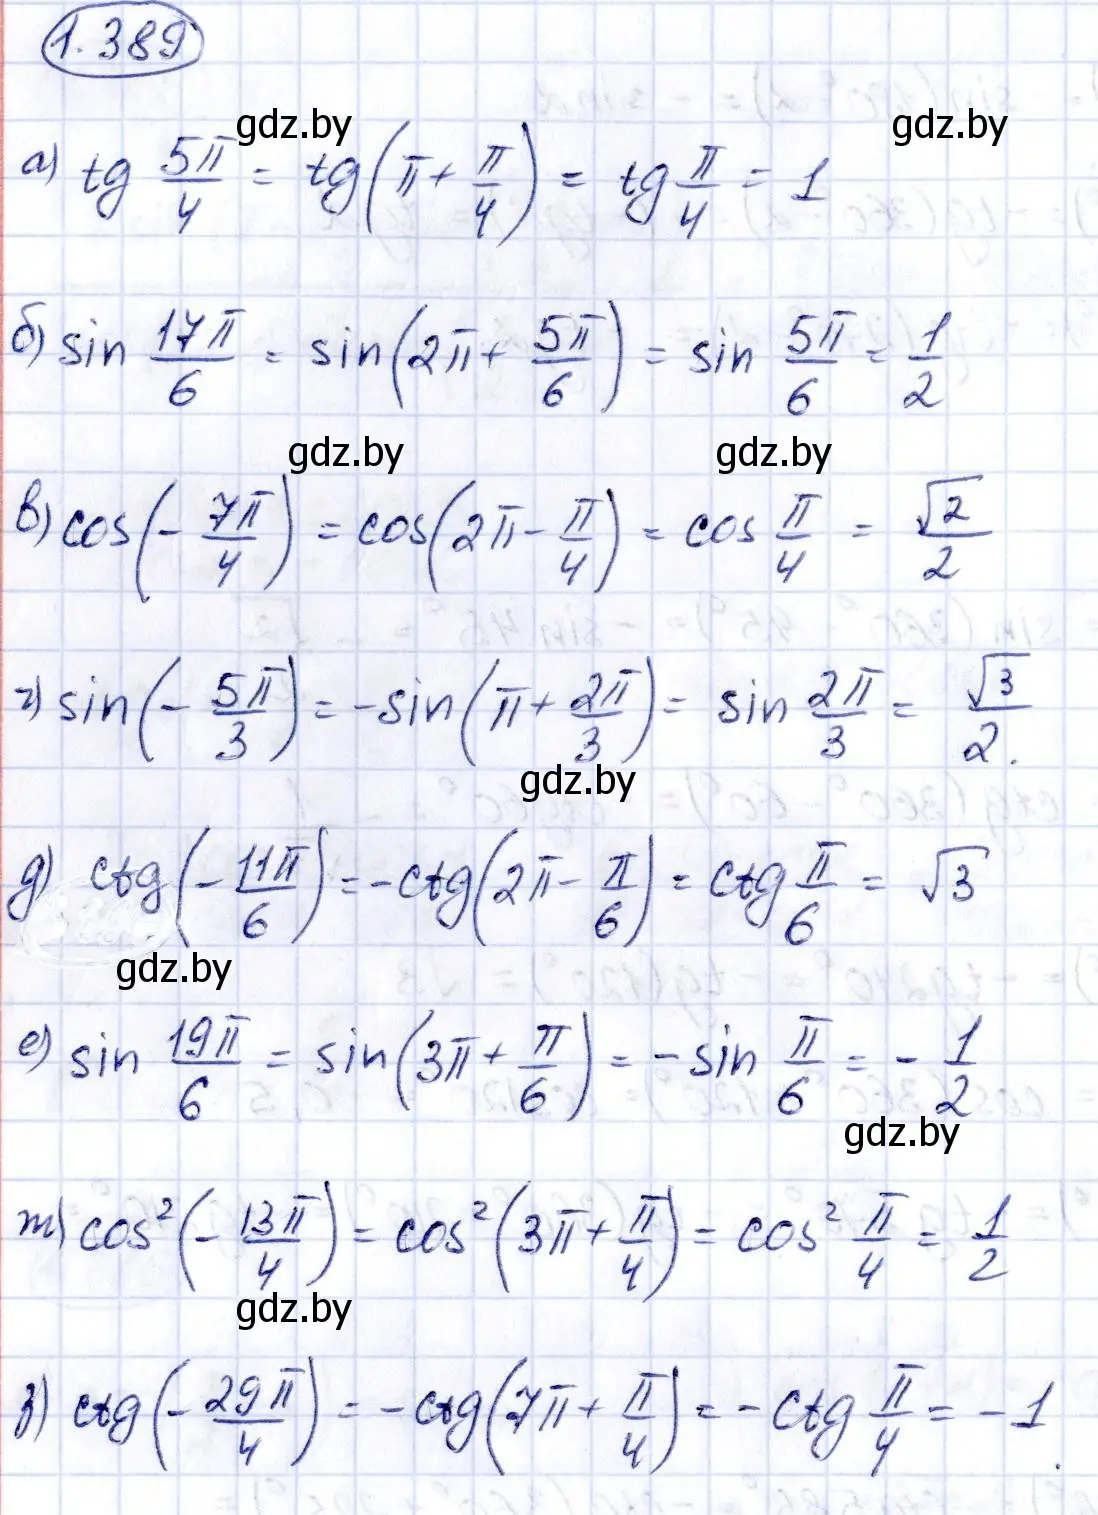 1.389
gdz.by gdz.by
а) tg 5π/4 = tg(π + π/4) = tg π/4 = 1
б) sin 17π/6 = sin(2π + 5π/6) = sin 5π/6 = 1/2
gdz.by gdz.by
в) cos(- 7π/4) = cos(2π - π/4) = cos π/4 = √2/2
г) sin(- 5π/3) = -sin(π + 2π/3) = sin 2π/3 = √3/2.
gdz.by
д) ctg(- 11π/6) = -ctg(2π - π/6) = ctg π/6 = √3
gdz.by
е) sin 19π/6 = sin(3π + π/6) = -sin π/6 = - 1/2
gdz.by
ж) cos²(- 13π/4) = cos²(3π + π/4) = cos² π/4 = 1/2
gdz.by
з) ctg(- 29π/4) = -ctg(7π + π/4) = -ctg π/4 = -1.